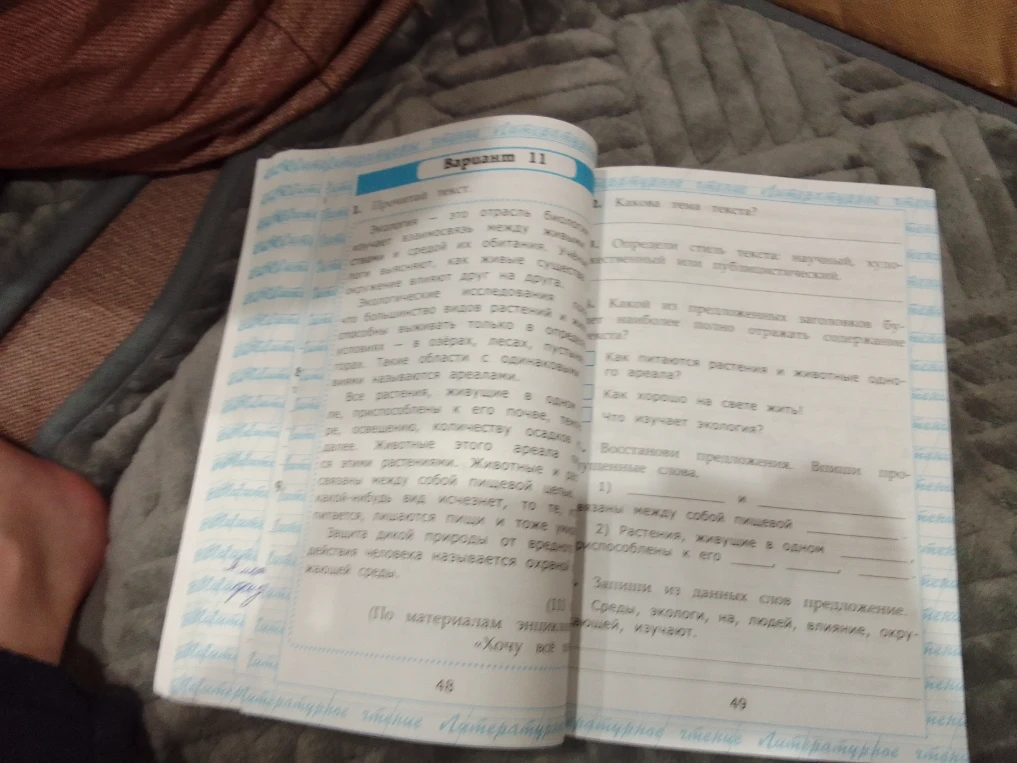 Вариант 11
1. Прочитай текст.
Экология — это отрасль биологии
изучает взаимосвязь между живыми
ствами и средой их обитания. учён
логи выясняют, как живые существа
окружение влияют друг на друга.
Экологические исследования
что большинство видов растений и жив
способны выживать только в определ
условиях — в озёрах, лесах, пустын
горах. Такие области с одинаковыми
виями называются ареалами.
Все растения, живущие в одном
ле, приспособлены к его почве, темп
ре, освещению, количеству осадков
далее. Животные этого ареала
ся этими растениями. Животные и рас
связаны между собой пищевой цепью.
какой-нибудь вид исчезнет, то те,
питается, лишаются пищи и тоже
Защита дикой природы от вредно
действия человека называется охраной
жающей среды.
(По материалам энцикл
«Хочу всё
48
2. Какова тема текста?
Определи стиль текста: научный, худо-
жественный или публицистический.
Какой из предложенных заголовков бу-
дет наиболее полно отражать содержание
текста?
Как питаются растения и животные одно-
го ареала?
Как хорошо на свете жить!
Что изучает экология?
Восстанови предложения. Впиши про-
пущенные слова.
1) и
связаны между собой пищевой
2) Растения, живущие в одном
приспособлены к его , , .
Запиши из данных слов предложение.
Среды, экологи, на, людей, влияние, окру-
жающей, изучают.
49
Литературное чтение Литературное чтение